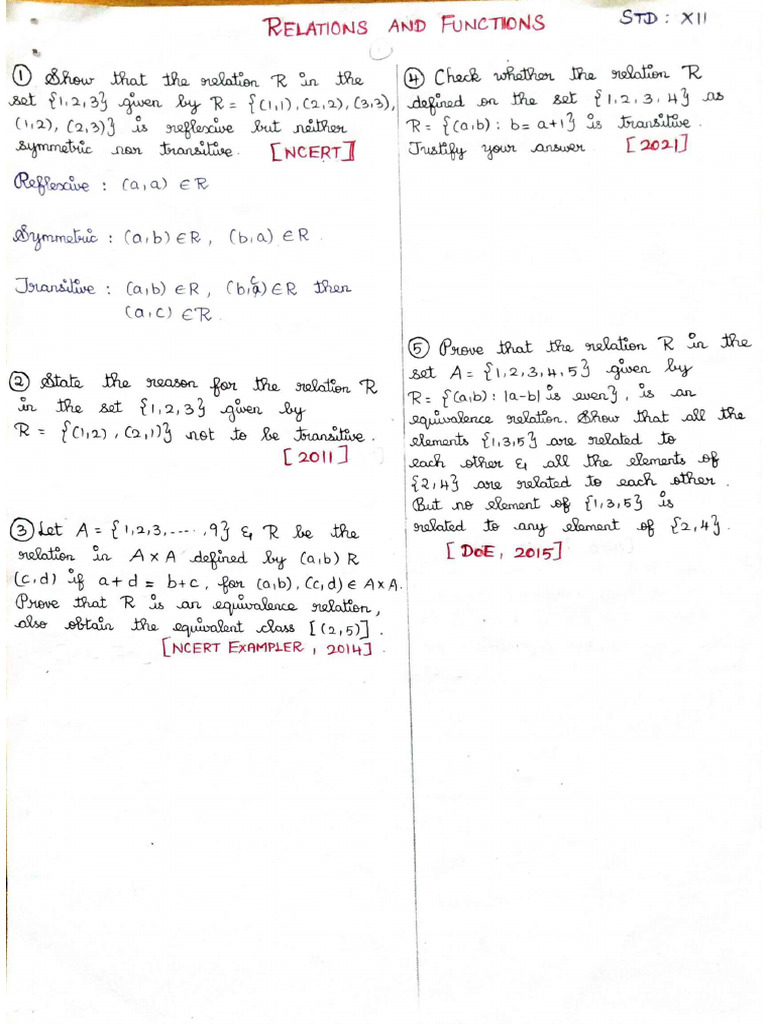 RELATIONS AND FUNCTIONS
STD : XII
① Show that the relation R in the
set {1,2,3} given by R = {(1,1), (2,2), (3,3),
(1,2), (2,3)} is reflexive but neither
symmetric nor transitive. [NCERT]
Reflexive : (a,a) ∈ R
Symmetric : (a,b) ∈ R , (b,a) ∈ R .
Transitive : (a,b) ∈ R , (b,c) ∈ R then
(a,c) ∈ R .
② State the reason for the relation R
in the set {1,2,3} given by
R = {(1,2) , (2,1)} not to be transitive.
[2011]
③ Let A = {1,2,3, ...., 9} & R be the
relation in A×A defined by (a,b) R
(c,d) if a+d = b+c, for (a,b), (c,d) ∈ A×A.
Prove that R is an equivalence relation,
also obtain the equivalent class [(2,5)].
[NCERT EXAMPLER , 2014].
④ Check whether the relation R
defined on the set {1,2,3,4} as
R = {(a,b) : b = a+1} is transitive.
Justify your answer. [2021]
⑤ Prove that the relation R in the
set A = {1,2,3,4,5} given by
R = {(a,b) : |a-b| is even}, is an
equivalence relation. Show that all the
elements {1,3,5} are related to
each other & all the elements of
{2,4} are related to each other.
But no element of {1,3,5} is
related to any element of {2,4}.
[DoE, 2015]